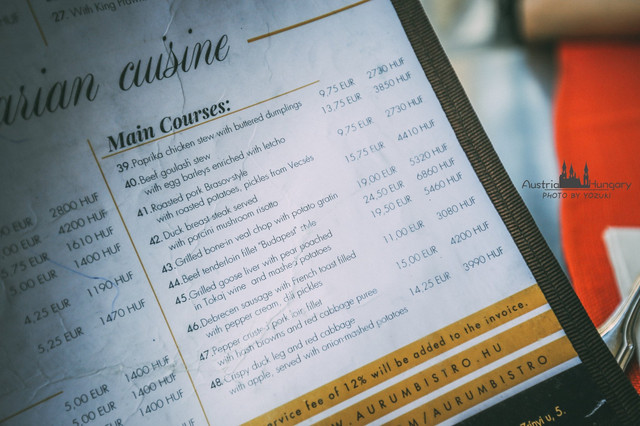 27. With King Prawn
arian cuisine
Main Courses:
39. Paprika chicken stew with buttered dumplings 9,75 EUR 2730 HUF
40. Beef goulash stew 13,75 EUR 3850 HUF
with egg barleys enriched with letcho
41. Roasted pork Brasov-style 9,75 EUR 2730 HUF
with roasted potatoes, pickles from Vecsés
42. Duck breast steak served 15,75 EUR 4410 HUF
with porcini mushroom risotto
43. Grilled bone-in veal chop with potato gratin 19,00 EUR 5320 HUF
44. Beef tenderloin fillet "Budapest" style 24,50 EUR 6860 HUF
45. Grilled goose liver with pear poached 19,50 EUR 5460 HUF
in Tokaj wine and mashed potatoes
46. Debrecen sausage with French toast filled 11,00 EUR 3080 HUF
with pepper cream, dill pickles
47. Pepper crusted pork loin fillet 15,00 EUR 4200 HUF
with hash browns and red cabbage puree
48. Crispy duck leg and red cabbage 14,25 EUR 3990 HUF
with apple, served with onion mashed potatoes
2800 HUF
,00 EUR 4200 HUF
5,00 EUR 1610 HUF
5,75 EUR 1400 HUF
,00 EUR
1190 HUF
4,25 EUR
1470 HUF
5,25 EUR
1400 HUF
5,00 EUR 1400 HUF
5,00 EUR 1400 HUF
ervice fee of 12% will be added to the invoice.
W.AURUMBISTRO.HU
M/AURUMBISTRO
u. 5.
Austria Hungary
PHOTO BY YOZUKI